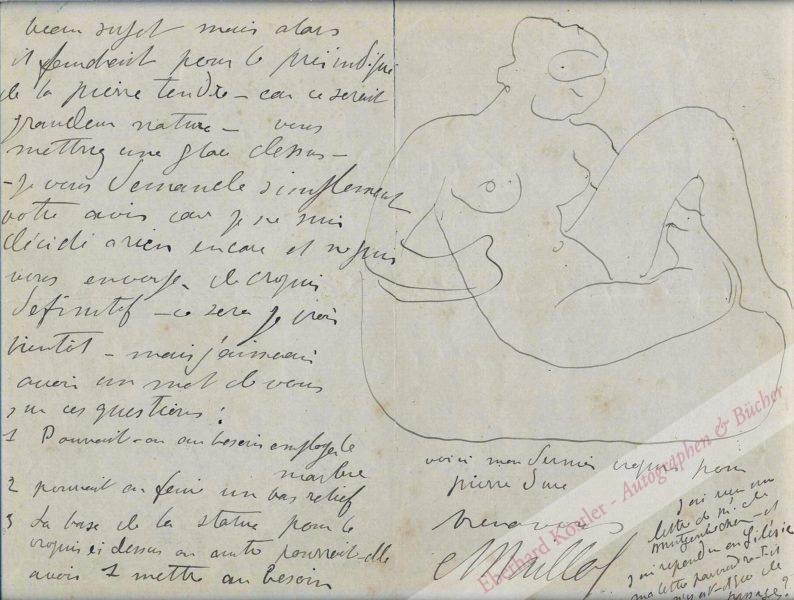 beau sujet mais alors
il faudrait pour le
de la pierre tendre - car ce serait
grandeur nature - vous
mettrez une glace dessus -
- je vous demande simplement
votre avis car je ne suis
décidé a rien encore et ne puis
vous envoyer de croquis
définitif - ce sera je crois
bientôt - mais j'aimerais
avoir un mot de vous
sur ces questions :
1 Pourrait-on au besoin employer le
marbre
2 pourrait on faire un bas relief
3 La base de la statue pour le
croquis ci dessus ou autre pourrait-elle
avoir 1 mettre au besoin
voici mon dernier croquis pour
pierre dure
bien a vous
A Maillol
j'ai reçu une
lettre de
et
j'ai répondu en Silésie
ma lettre
de
Eberhard Köstler - Autographen & Bücher